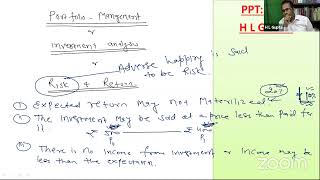 PPT:
H L G
H L Gupta
Portfolio - Mangement
or
Investment analysis
or
Adverse happing is said
to be Risk
Risk + Return
① Expected return May not Materilize
20%
10%
② The investment May be sold at a price less than paid for
it
P0
P1
③ There is no income from investment or income may be
less than the expectation.
zoom